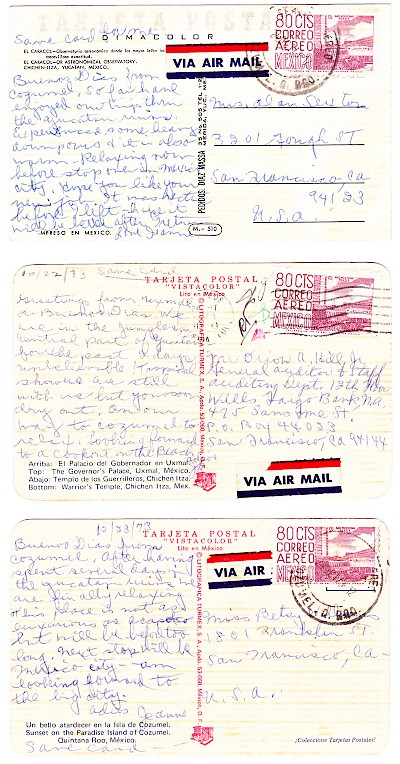 TARJETA POSTAL
DIMACOLOR
Same card
EL CARACOL-Observatorio
EL CARACOL-OR ASTRONOMICAL OBSERVATORY,
CHICHEN-ITZA, YUCATAN, MEXICO.
80 CTS
CORREO
AEREO
MEXICO
VIA AIR MAIL
Buenos Dias from
Cozumel, So far have
enjoyed our trip thru
the yucatan ruins.
Experienced some heavy
down pours & it is also
warm. Relaxing now
before stop over in Mexico
City. Hope you like your
new job. It was hectic
before I left hope it
will be better after return
Love Jeanne
IMPRESO EN MEXICO.
M.-510
PEDIDOS: DIAZ MASSA
Mrs. Alan Sexton
3201 Gough ST
San Francisco, Ca
94123
U.S.A.
10/22/73 Same Card
TARJETA POSTAL
"VISTACOLOR"
Lito en México
Greetings from
or Buenos Dias. We
are in the jungles in
central part of
for the past days
unbelievable tropical
showers are still
with us but you soon
dry out. Am on our
way to cozumel to
relax. Looking forward
to a cookout on the Beach
Arriba: El Palacio del Gobernador en Uxmal,
Top: The Governor's Palace, Uxmal, México.
Abajo: Templo de los Guerrilleros, Chichen Itza,
Bottom: Warrior's Temple, Chichen Itza, Mex.
© LITOGRAFIA TURMEX, S. A. Apdo. 53-060, México, D. F.
80 CTS
CORREO
AEREO
MEXICO
A. Hill, Jr.
General auditor & Staff
auditing Dept. 13th floor
Wells Fargo Bank, Na.
475 Sansome St.
P.O. Box 44033
San Francisco, Ca 94144
VIA AIR MAIL
10/23/73
TARJETA POSTAL
"VISTACOLOR"
Lito en México
Buenos Dias from
cozumel, after having
spent several days in
the yucatan ruins we
are finally relaxing
This place is not as
luxurious as acapulco
but will be before too
long. next stop will be
Mexico city - am
looking forward to
the big city.
adios
Jeanne
Un bello atardecer en la Isla de Cozumel.
Sunset on the Paradise Island of Cozumel.
Quintana Roo, México.
Same card
© LITOGRAFIA TURMEX, S. A. Apdo. 53-060, México, D. F.
VIA AIR
80 CTS
CORREO
AEREO
MEXICO
Miss Betsy
1801 Franklin ST.
San Francisco, Ca-
U.S.A.
¡Coleccione Tarjetas Postales!